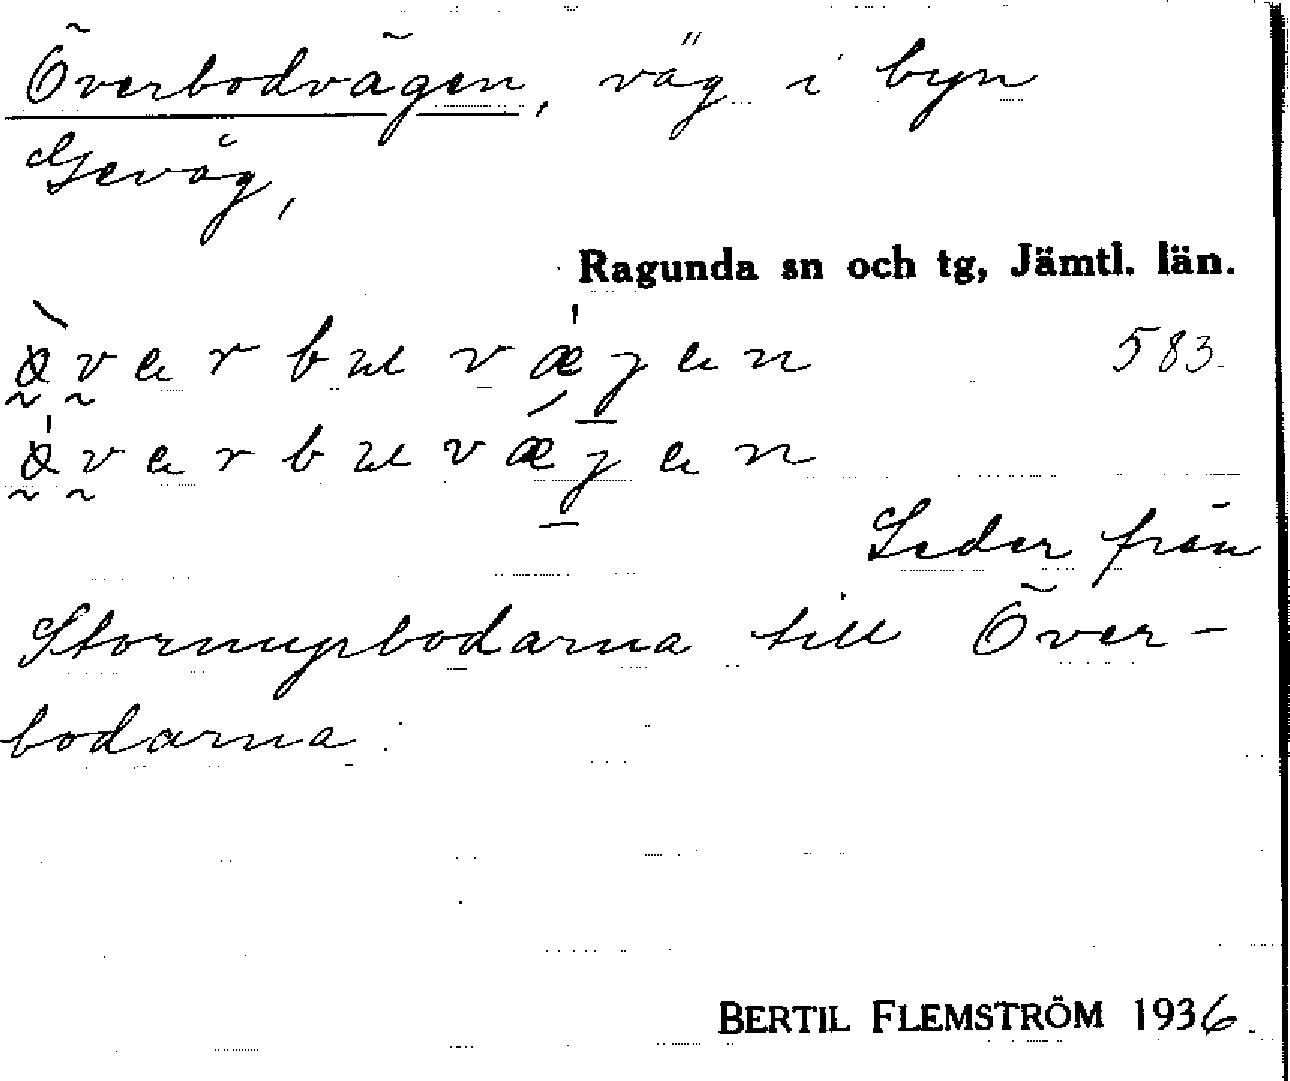 Överbodvägen, väg i byn
Gevåg,
Ragunda sn och tg, Jämtl. län.
583
Leder från
Stornupbodarna till Över-
bodarna.
BERTIL FLEMSTRÖM 1936.